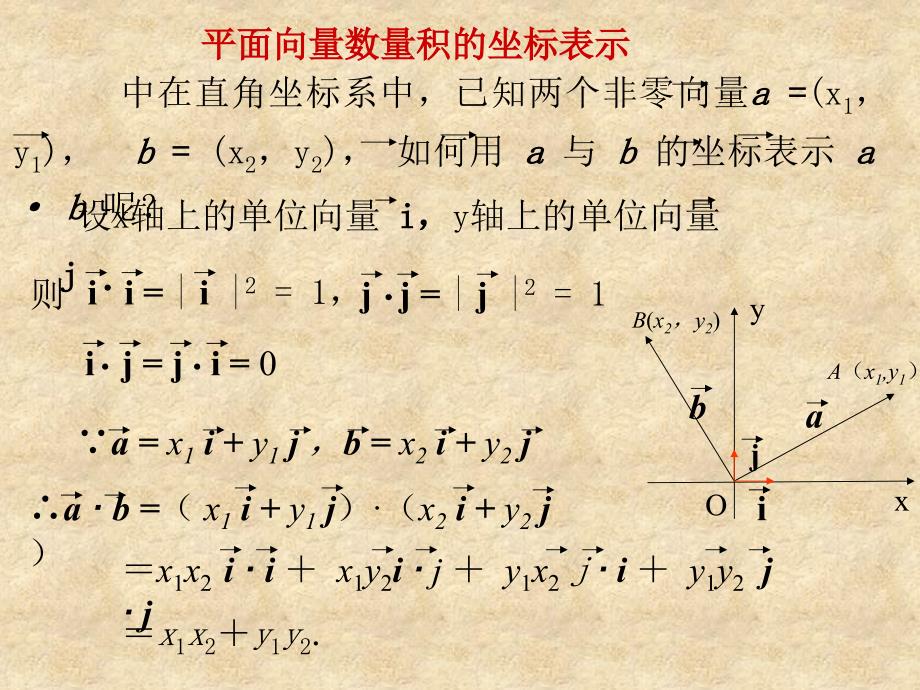 平面向量数量积的坐标表示
中在直角坐标系中，已知两个非零向量a =(x₁，
y₁)， b = (x₂，y₂)， 如何用 a 与 b 的坐标表示 a
• b 呢?
设x轴上的单位向量 i，y轴上的单位向量
j
则 i · i = | i |² = 1，j · j = | j |² = 1
i · j = j · i = 0
∵a = x₁ i + y₁ j ，b = x₂ i + y₂ j
∴a · b =（ x₁ i + y₁ j）·（x₂ i + y₂ j
）
＝x₁x₂ i · i ＋ x₁y₂i · j ＋ y₁x₂ j · i ＋ y₁y₂ j
· j
＝x₁x₂＋y₁y₂.
y
B(x₂，y₂)
A（x₁,y₁）
b
a
j
O
i
x